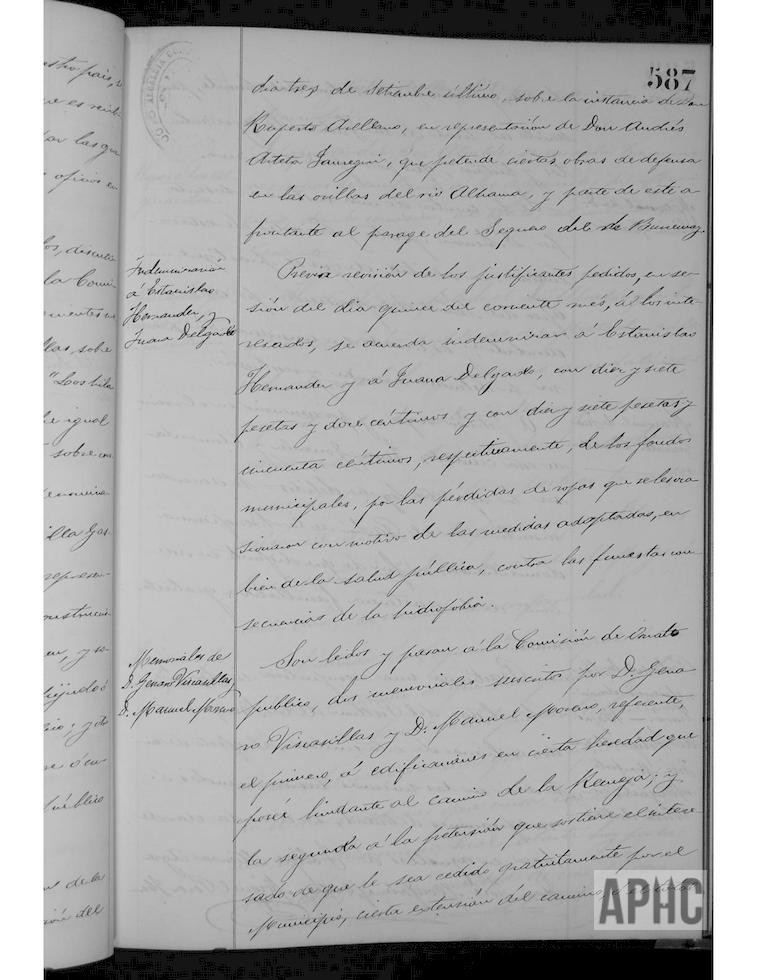 587
dia tres de Setiembre último, sobre la instancia de Don
Ruperto Arellano, en representasión de Don Andrés
Arteta Jauregui, que pretende ciertas obras de defensa
en las orillas del rio Alhama, y parte de este a-
frontante al parage del Seguero del
Indemnización
á Estanislao
Hernander, y
Juana Delgado
Previa revisión de los justificantes pedidos, en se-
sión del dia quince del corriente mes, á los inte-
resados, se acuerda indemnizar á Estanislao
Hernander y á Juana Delgado, con diez y siete
pesetas y doce céntimos y con diez y siete pesetas y
cincuenta céntimos, respectivamente, de los fondos
municipales, por las pérdidas de ropas que se les oca-
sionaron con motivo de las medidas adoptadas, en
bien de la salud pública, contra las funestas con-
secuencias de la hidrofobia.
Memoriales de
D. Genaro Viscasillas y
D. Manuel Moreno
Son leidos y pasan á la Comisión de Ornato
publico, dos memoriales suscritos por D. Gena
ro Viscasillas y D. Manuel Moreno, referente,
el primero, á edificaciones en cierta heredad que
posée lindante al camino de la
la segunda á la petensión que sostiene el intere
sado de que le sea cedido gratuitamente por el
Municipio, cierta extensión del camino
tro pais,
que es
las que
oficios en
la Comi-
sobre
igual
sobre
illa Gas
represen-
público
de la
del
APHC